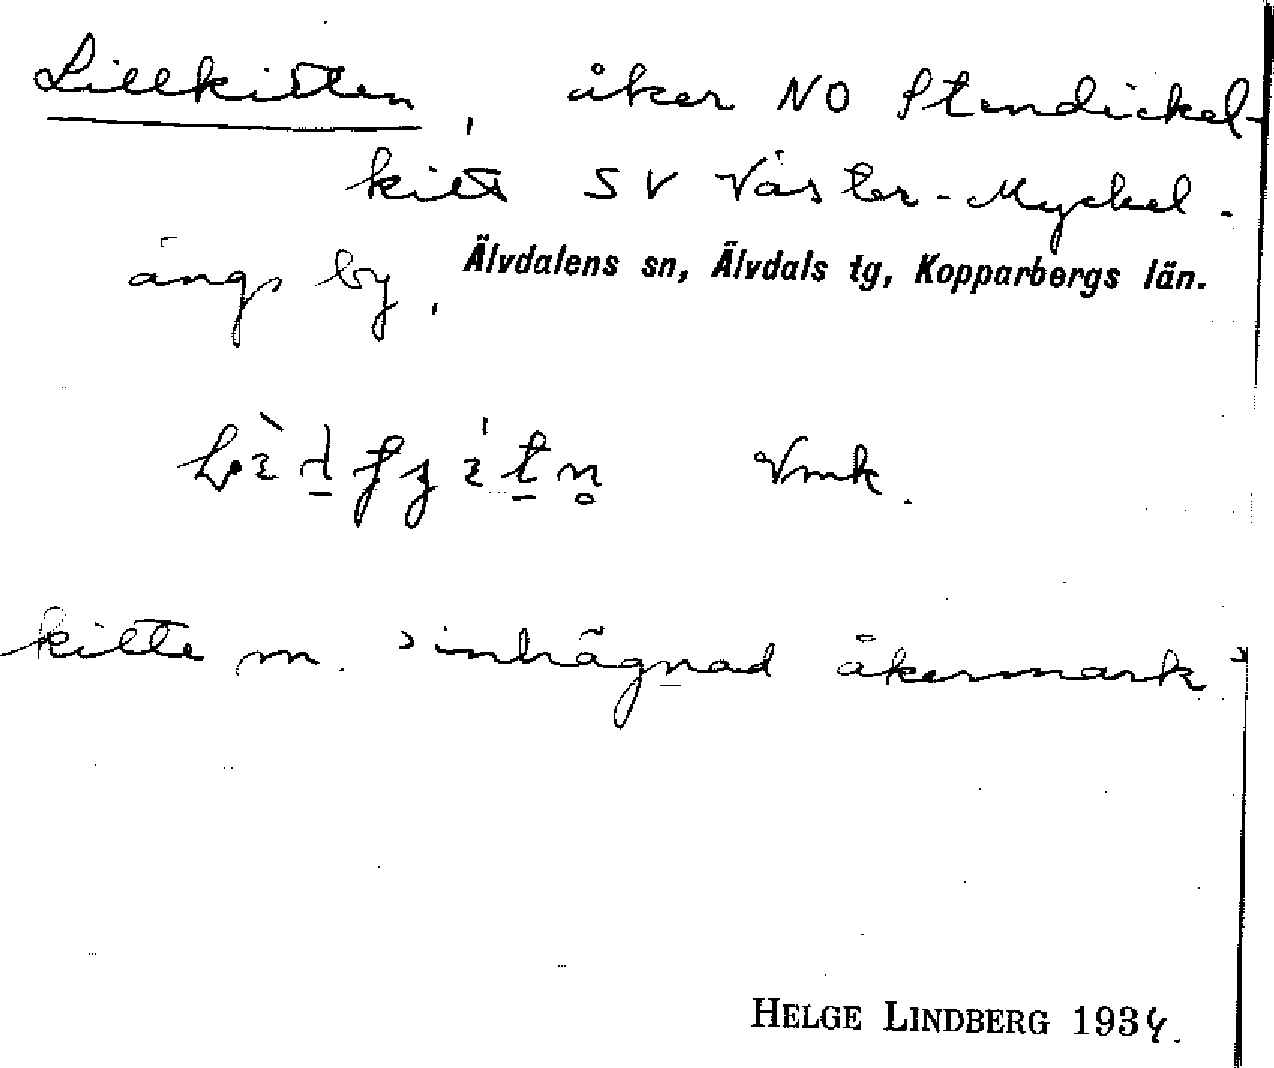 Lillkitten, åker NO Stendickel-
kitt SV Väster-Myckel-
ängs by. Älvdalens sn, Älvdals tg, Kopparbergs län.
Vmk.
kitte m. "inhägnad åkermark"
HELGE LINDBERG 1934.